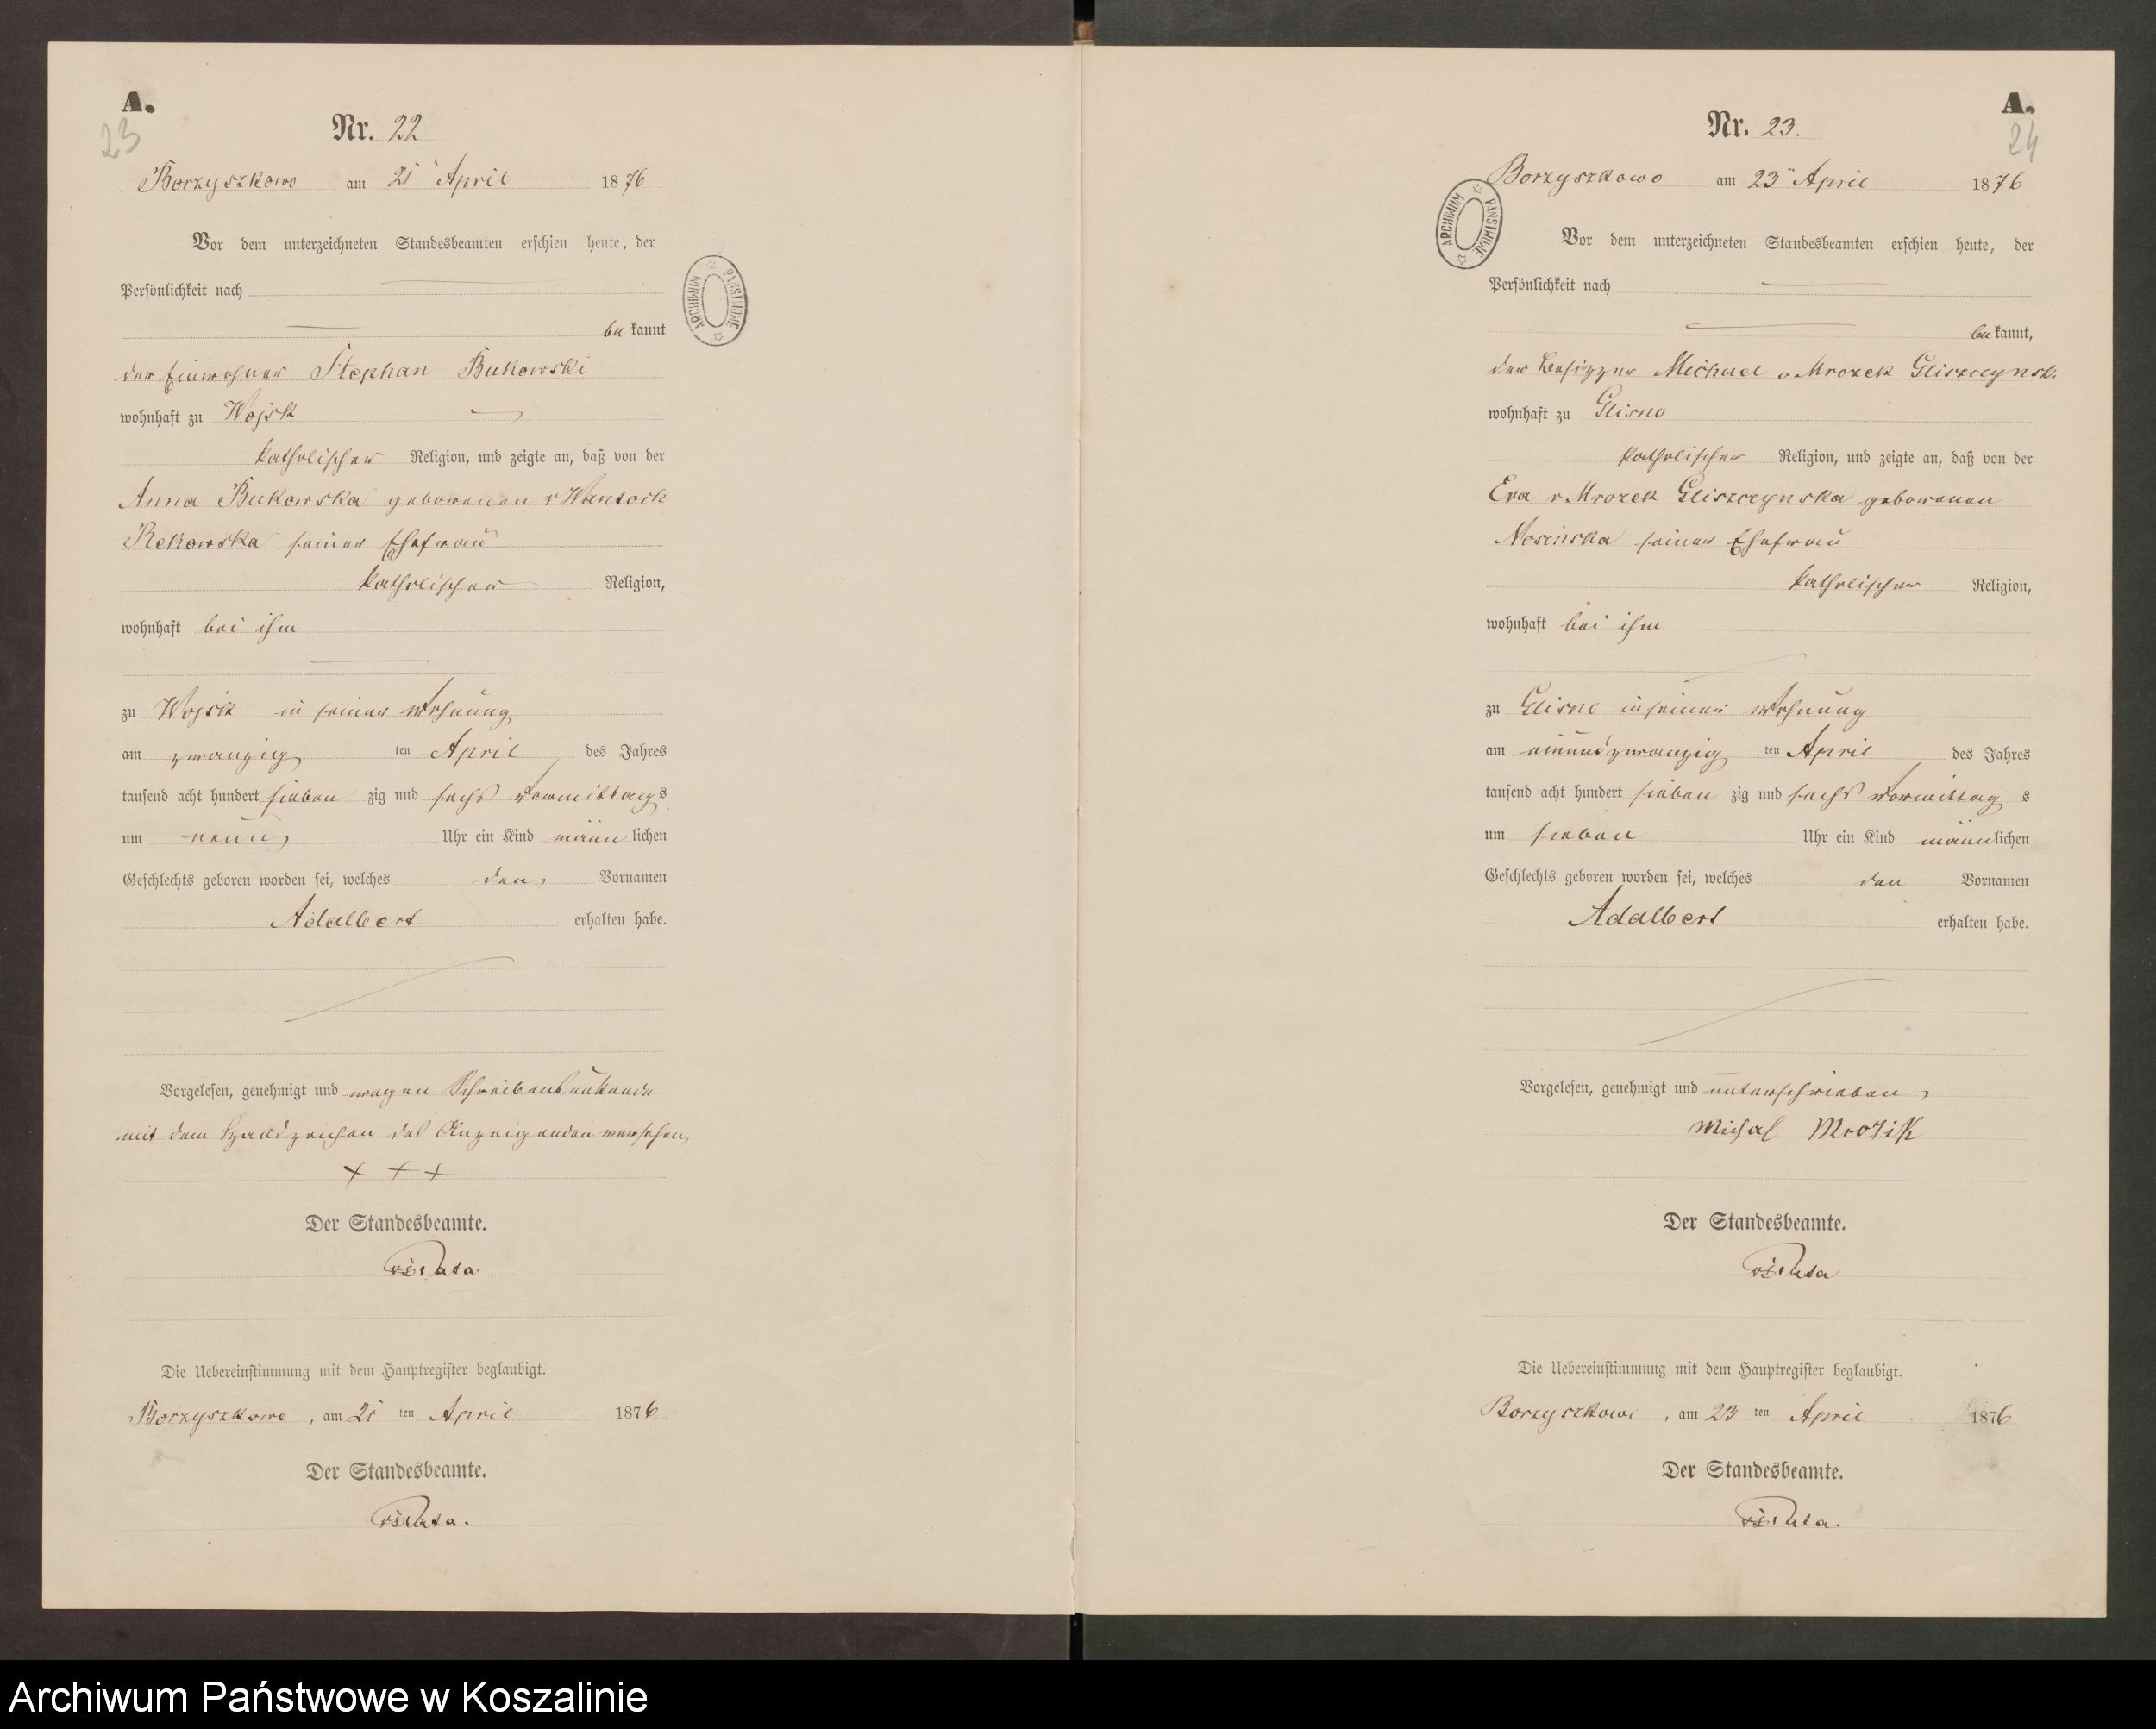 A.
23
Nr. 22
Borzyszkowo am 21" April 1876
Vor dem unterzeichneten Standesbeamten erschien heute, der
Persönlichkeit nach
be kannt
der Einwohner Stephan Bukowski
wohnhaft zu Wojsk
katholischer Religion, und zeigte an, daß von der
Anna Bukowska geborenen v Wantoch
Rekowska seiner Ehefrau
katholischer Religion,
wohnhaft bei ihm
zu Wojsk in seiner Wohnung
am zwanzig ten April des Jahres
tausend acht hundert sieben zig und sechs Vormittags
um neun Uhr ein Kind männ lichen
Geschlechts geboren worden sei, welches den Vornamen
Adalbert erhalten habe.
Vorgelesen, genehmigt und wegen Schreibensunkunde
mit dem Handzeichen des Anzeigenden versehen,
+ + +
Der Standesbeamte.
Die Uebereinstimmung mit dem Hauptregister beglaubigt.
Borzyszkowo, am 21 ten April 1876
Der Standesbeamte.
ARCHIWUM PAŃSTWOWE
A.
24
Nr. 23.
Borzyszkowo am 23" April 1876
ARCHIWUM PAŃSTWOWE
Vor dem unterzeichneten Standesbeamten erschien heute, der
Persönlichkeit nach
be kannt,
der Besitzer Michael v Mrozek Gliszczynski
wohnhaft zu Glisno
katholischer Religion, und zeigte an, daß von der
Eva v Mrozek Gliszczynska geborenen
Nosinska seiner Ehefrau
katholischer Religion,
wohnhaft bei ihm
zu Glisno in seiner Wohnung
am einundzwanzig ten April des Jahres
tausend acht hundert sieben zig und sechs Vormittag s
um sieben Uhr ein Kind männlichen
Geschlechts geboren worden sei, welches den Vornamen
Adalbert erhalten habe.
Vorgelesen, genehmigt und unterschrieben,
Michal Mrozik
Der Standesbeamte.
Die Uebereinstimmung mit dem Hauptregister beglaubigt.
Borzyszkowo, am 23 ten April 1876
Der Standesbeamte.
Archiwum Państwowe w Koszalinie